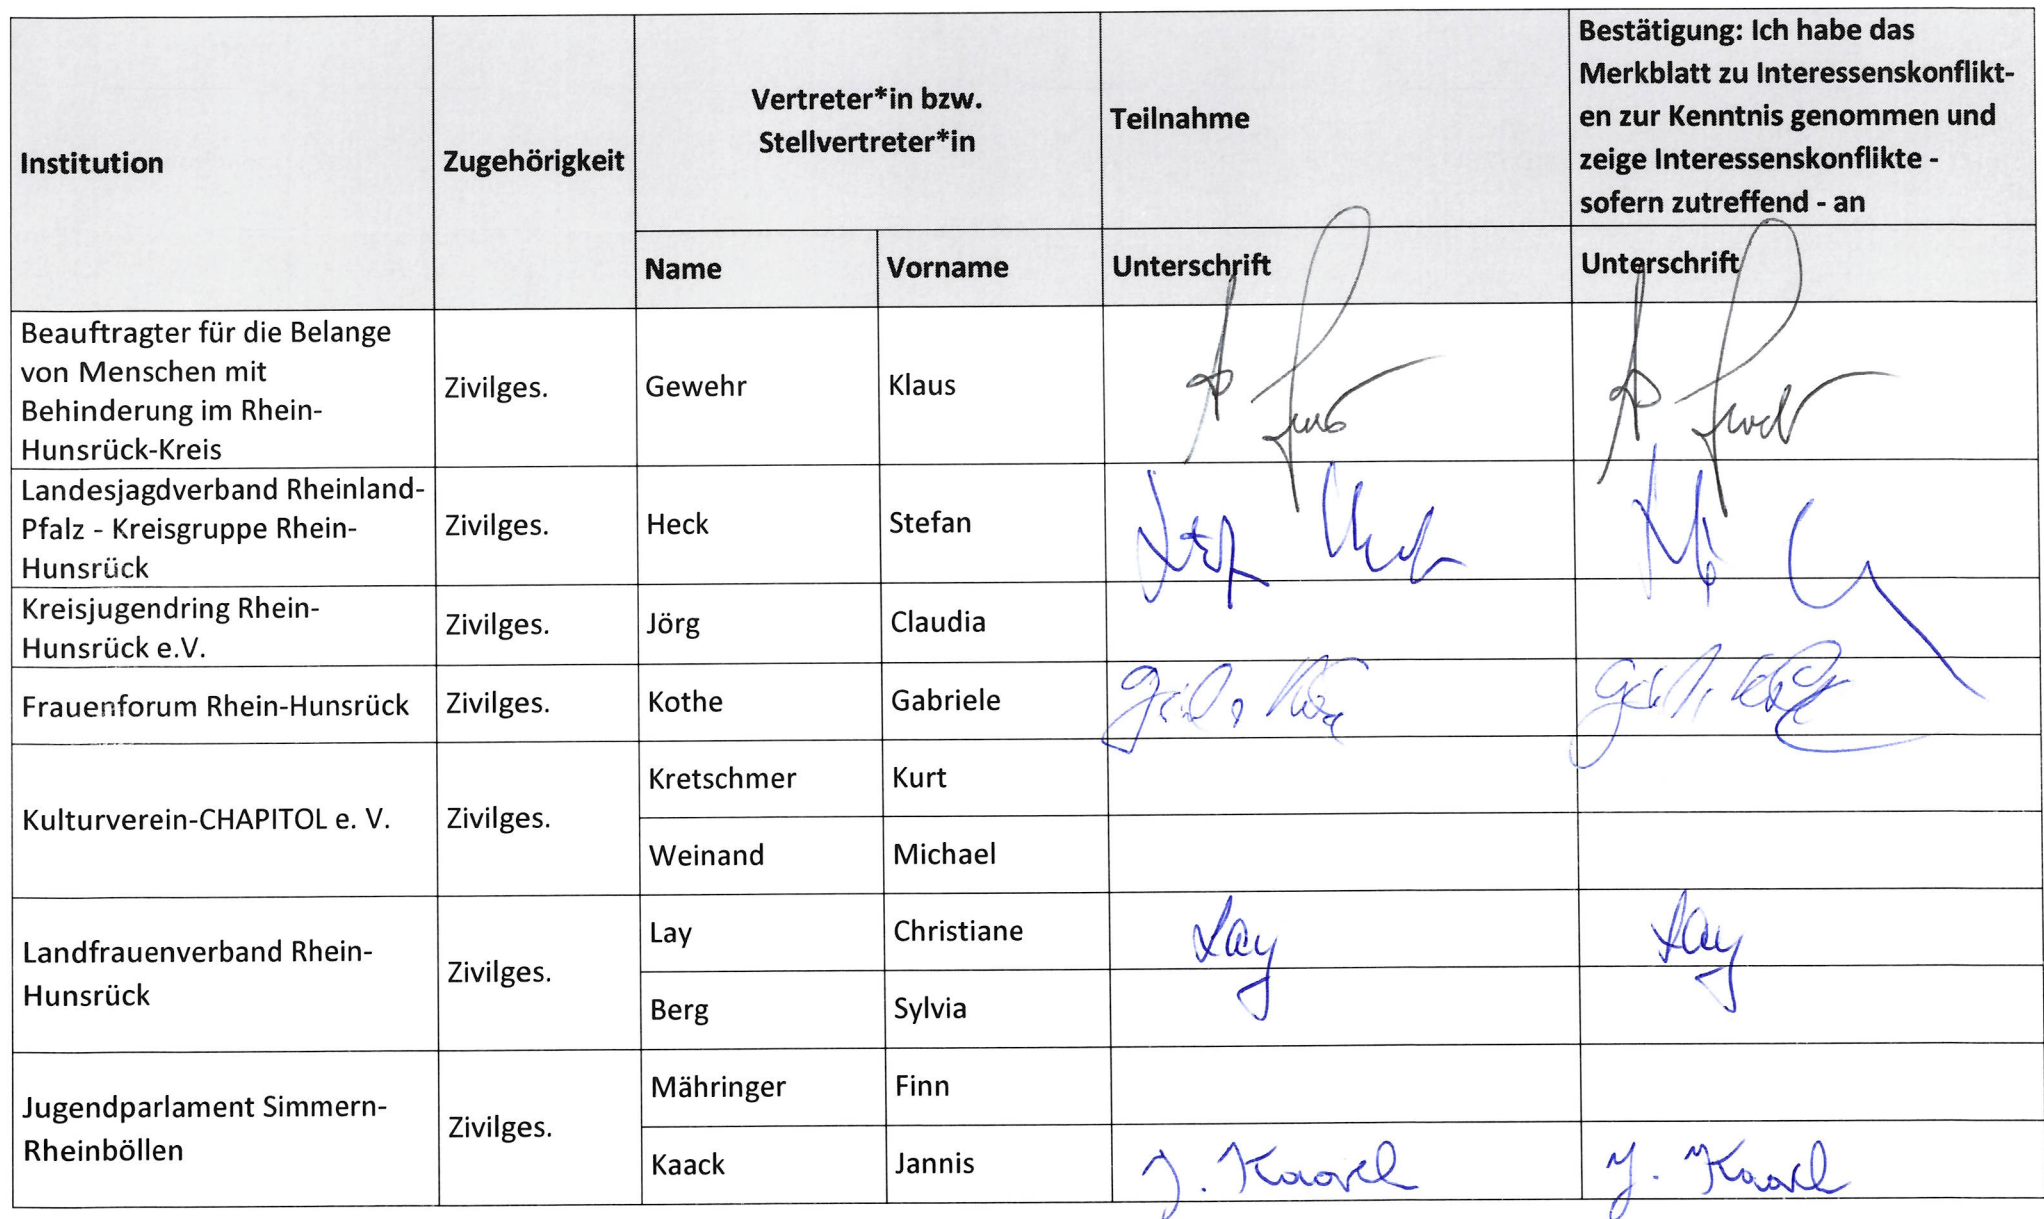 Institution
Zugehörigkeit
Vertreter*in bzw.
Stellvertreter*in
Teilnahme
Bestätigung: Ich habe das
Merkblatt zu Interessenskonflikt-
en zur Kenntnis genommen und
zeige Interessenskonflikte -
sofern zutreffend - an
Name
Vorname
Unterschrift
Unterschrift
Beauftragter für die Belange
von Menschen mit
Behinderung im Rhein-
Hunsrück-Kreis
Zivilges.
Gewehr
Klaus
Landesjagdverband Rheinland-
Pfalz - Kreisgruppe Rhein-
Hunsrück
Zivilges.
Heck
Stefan
Kreisjugendring Rhein-
Hunsrück e.V.
Zivilges.
Jörg
Claudia
Frauenforum Rhein-Hunsrück
Zivilges.
Kothe
Gabriele
Kulturverein-CHAPITOL e. V.
Zivilges.
Kretschmer
Kurt
Weinand
Michael
Landfrauenverband Rhein-
Hunsrück
Zivilges.
Lay
Christiane
Lay
Lay
Berg
Sylvia
Jugendparlament Simmern-
Rheinböllen
Zivilges.
Mähringer
Finn
Kaack
Jannis
J. Kaack
J. Kaack